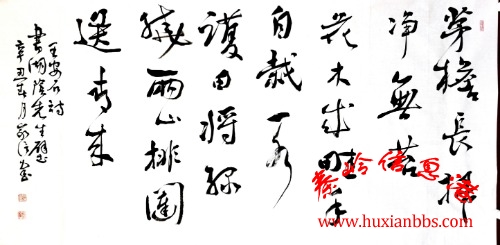 茅檐長掃
净無苔
花木成畦手
自栽一水
護田将绿
繞兩山排闥
送青来
王安石詩
書湖陰先生壁
辛丑春月
www.huxianbbs.com